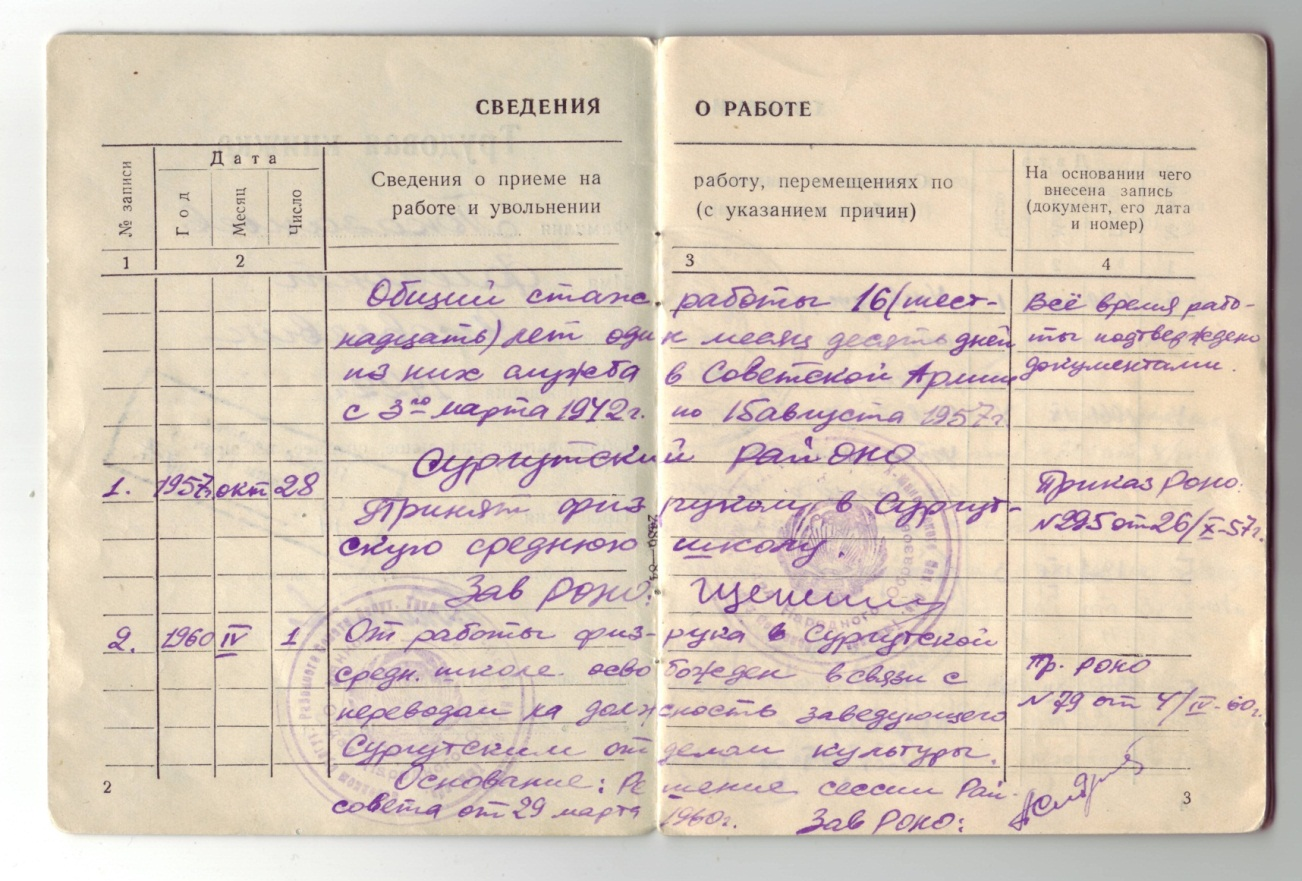 СВЕДЕНИЯ О РАБОТЕ
№ записи
Дата
Год
Месяц
Число
Сведения о приеме на работу, перемещениях по
работе и увольнении (с указанием причин)
На основании чего
внесена запись
(документ, его дата
и номер)
1 2 3 4
Общий стаж работы 16 (шест-
надцать) лет один месяц десять дней
из них служба в Советской Армии
с 3го марта 1942г. по 15 августа 1957г.
Всё время рабо-
ты подтверждено
документами.
Сургутский районо
1. 1957г. окт 28
Принят физруком в Сургут-
скую среднюю школу.
Зав роно:
Приказ Роно.
N 295 от 26/X-57г.
2. 1960 IV 1
От работы физрука в Сургутской
средн. школе освобожден в связи с
переводом на должность заведующего
Сургутским отделом культуры.
Основание: Решение сессии Рай-
совета от 29 марта 1960г. Зав Роно:
Пр. роно
N 79 от 4/IV-60г.
2
3